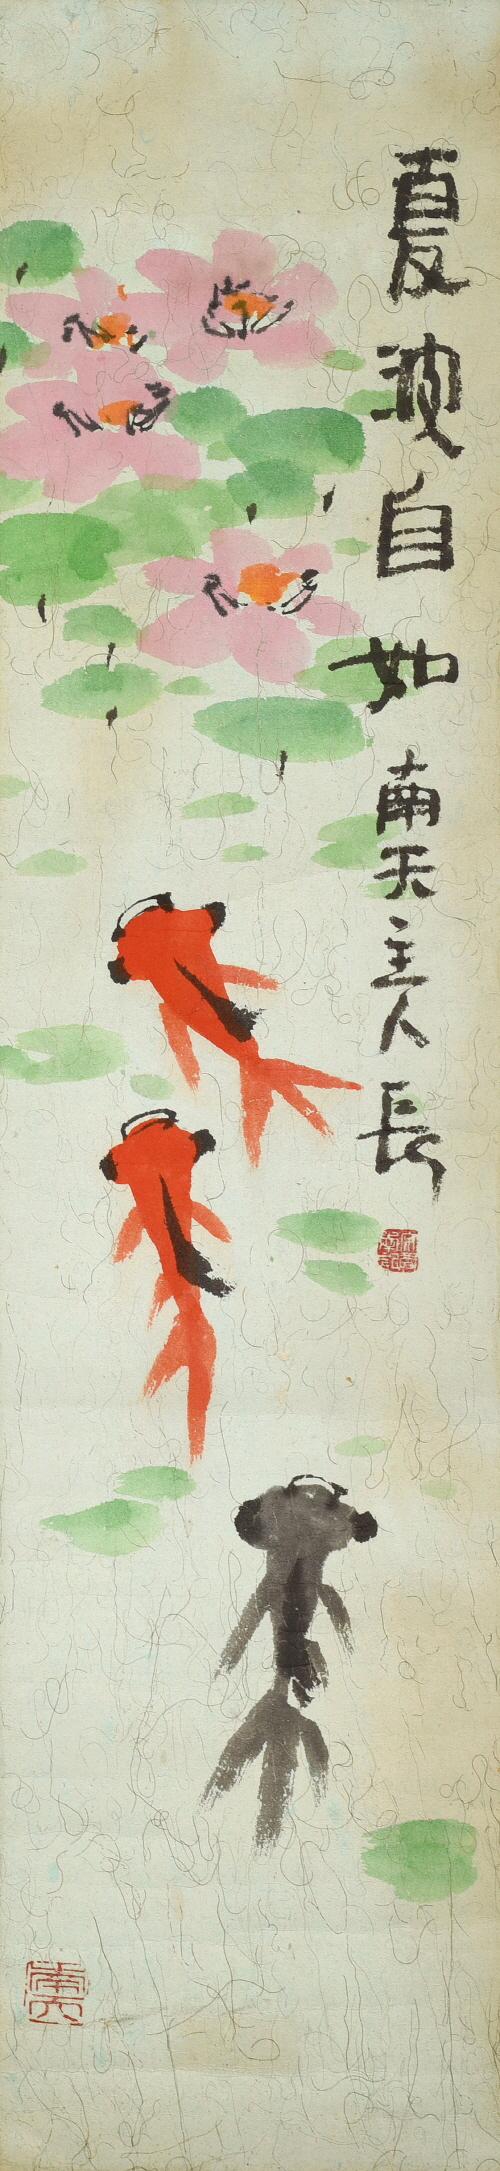 夏波自如 南天主人 長
南天